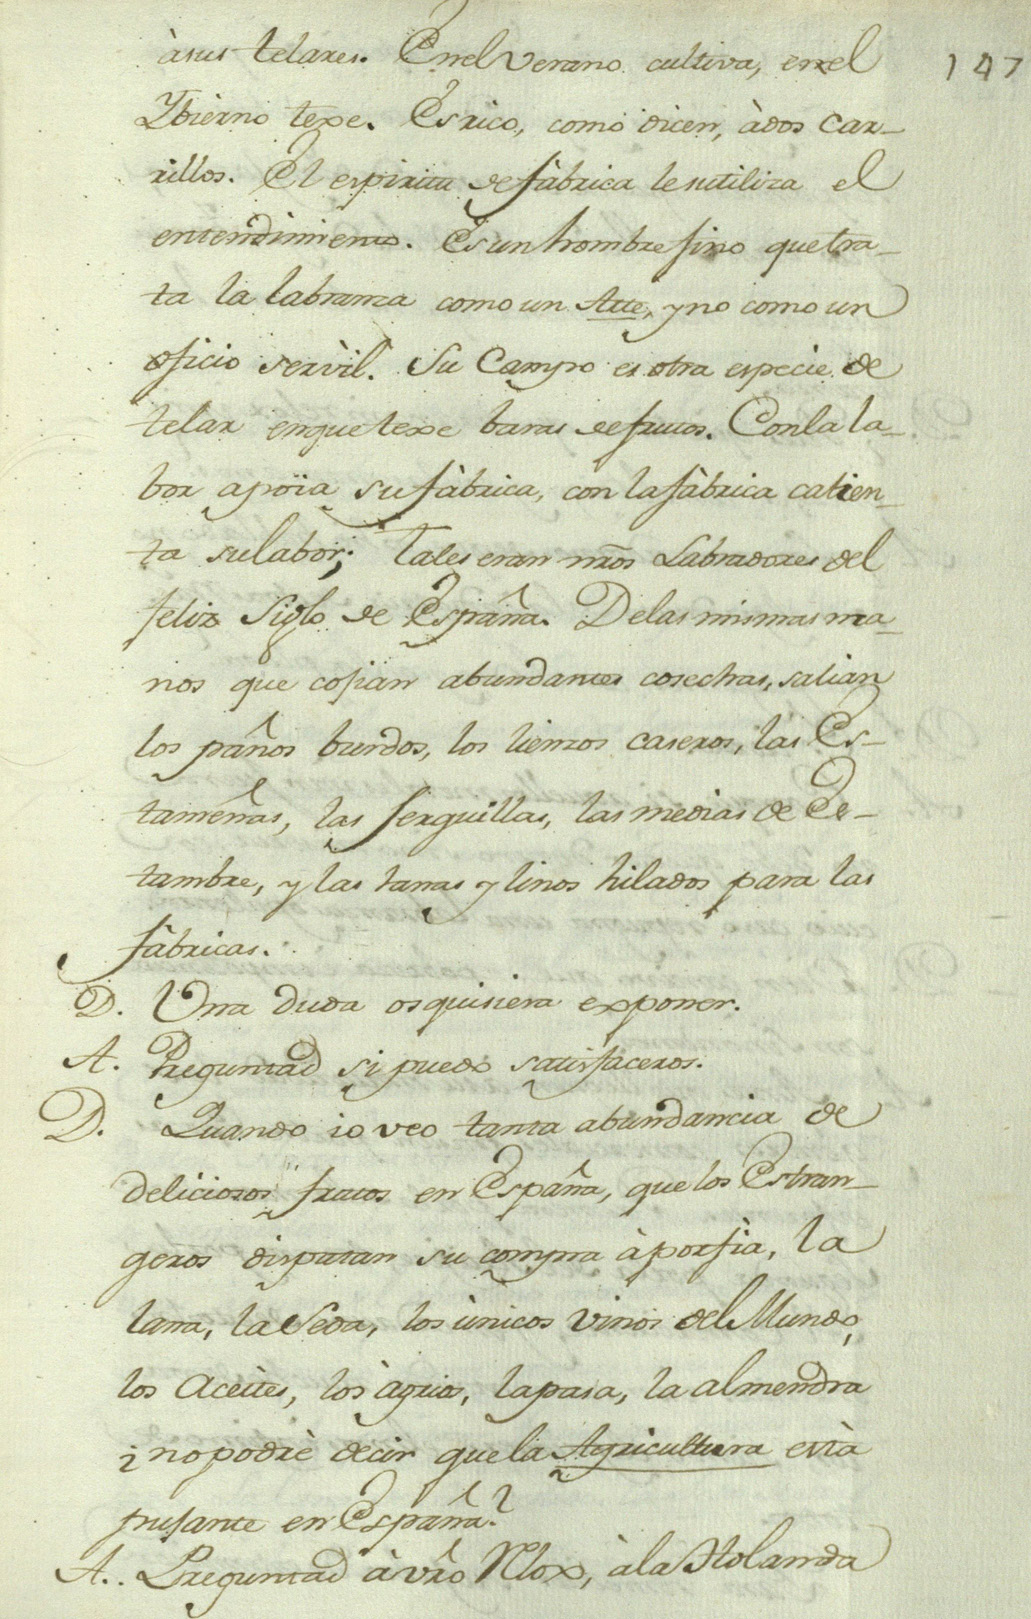 àsus telares. Enel verano cultiva, enel
147
Ybierno texe. Es rico, como dicen, àdos car-
rillos. El espiritu de fàbrica le sutiliza el
entendimiento. Es un hombre fino que tra-
ta la labranza como un Arte, y no como un
oficio servìl. Su Campo es otra especie de
telar enque texe baras de frutos. Con la la-
bor apoïa su fàbrica, con la fàbrica calien-
ta su labor; tales eran nr̃os Labradores del
feliz Siglo de España. De las mismas ma-
nos que cojian abundantes cosechas, salian
los paños burdos, los lienzos caseros, las Es-
tameñas, las serguillas, las medias de Es-
tambre, y las lanas y linos hilados para las
fàbricas.
D. Una duda os quisiera exponer.
A. Preguntad si puedo satisfaceros.
D. Quando io veo tanta abundancia de
deliciosos frutos en España, que los Estran-
geros disputan su compra àporfia, la
lana, la Seda, los ùnicos vinos del Mundo,
los Aceìtes, los àgrios, la pasa, la almendra
i no podrè decir que la Agricultura està
pujante en España?
A. Preguntad à vr̃o Nlox, à la Holanda